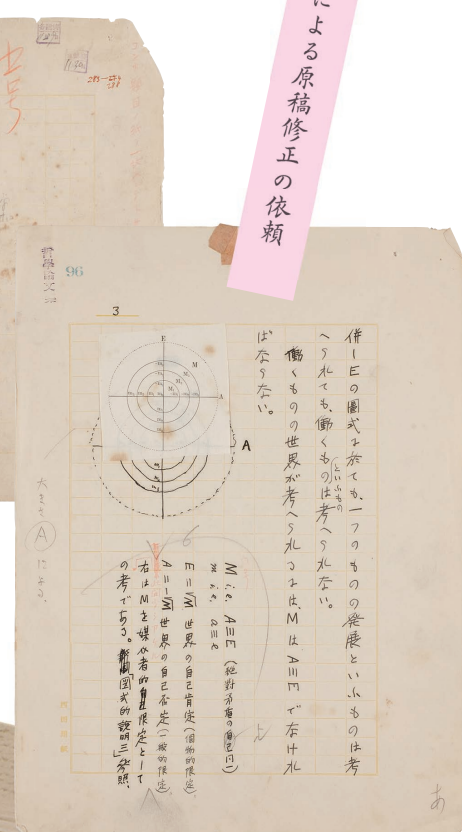 による原稿修正の依頼
五号
哲學論文三
96
3
併しEの圖式に於ても、一つのものの發展といふものは考
へられても、働くもの(といふもの)は考へられない。
働くものの世界が考へられるには、MはA≡Eでなけれ
ばならない。
E
M
A
A
M i.e. A≡E (絶對矛盾の自己同一)
m i.e. a≡e
E=√M 世界の自己肯定(個物的限定)
A=-√M 世界の自己否定(一般的限定)
右はMを媒介者的自己限定として
の考である。「圖式的說明」三參照。
大きさ A にする
あ